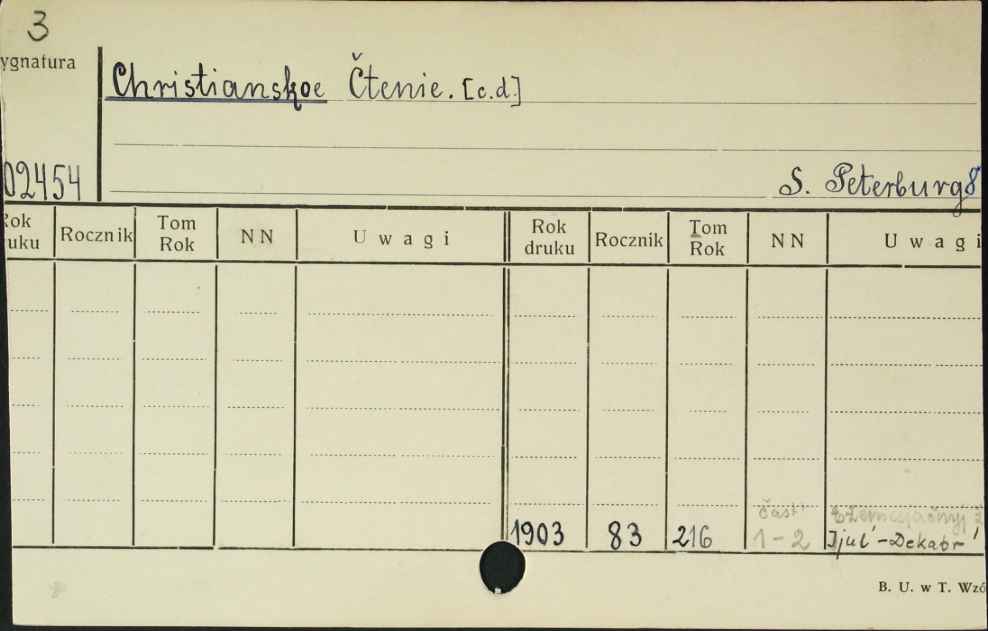 3
ygnatura
Christianskoe Čtenie. [c.d.]
02454
S. Peterburg
Rok druku Rocznik Tom Rok NN Uwagi Rok druku Rocznik Tom Rok NN Uwagi
čast'
1903 83 216 1-2 Ijul'-Dekabr'
B. U. w T. Wzó